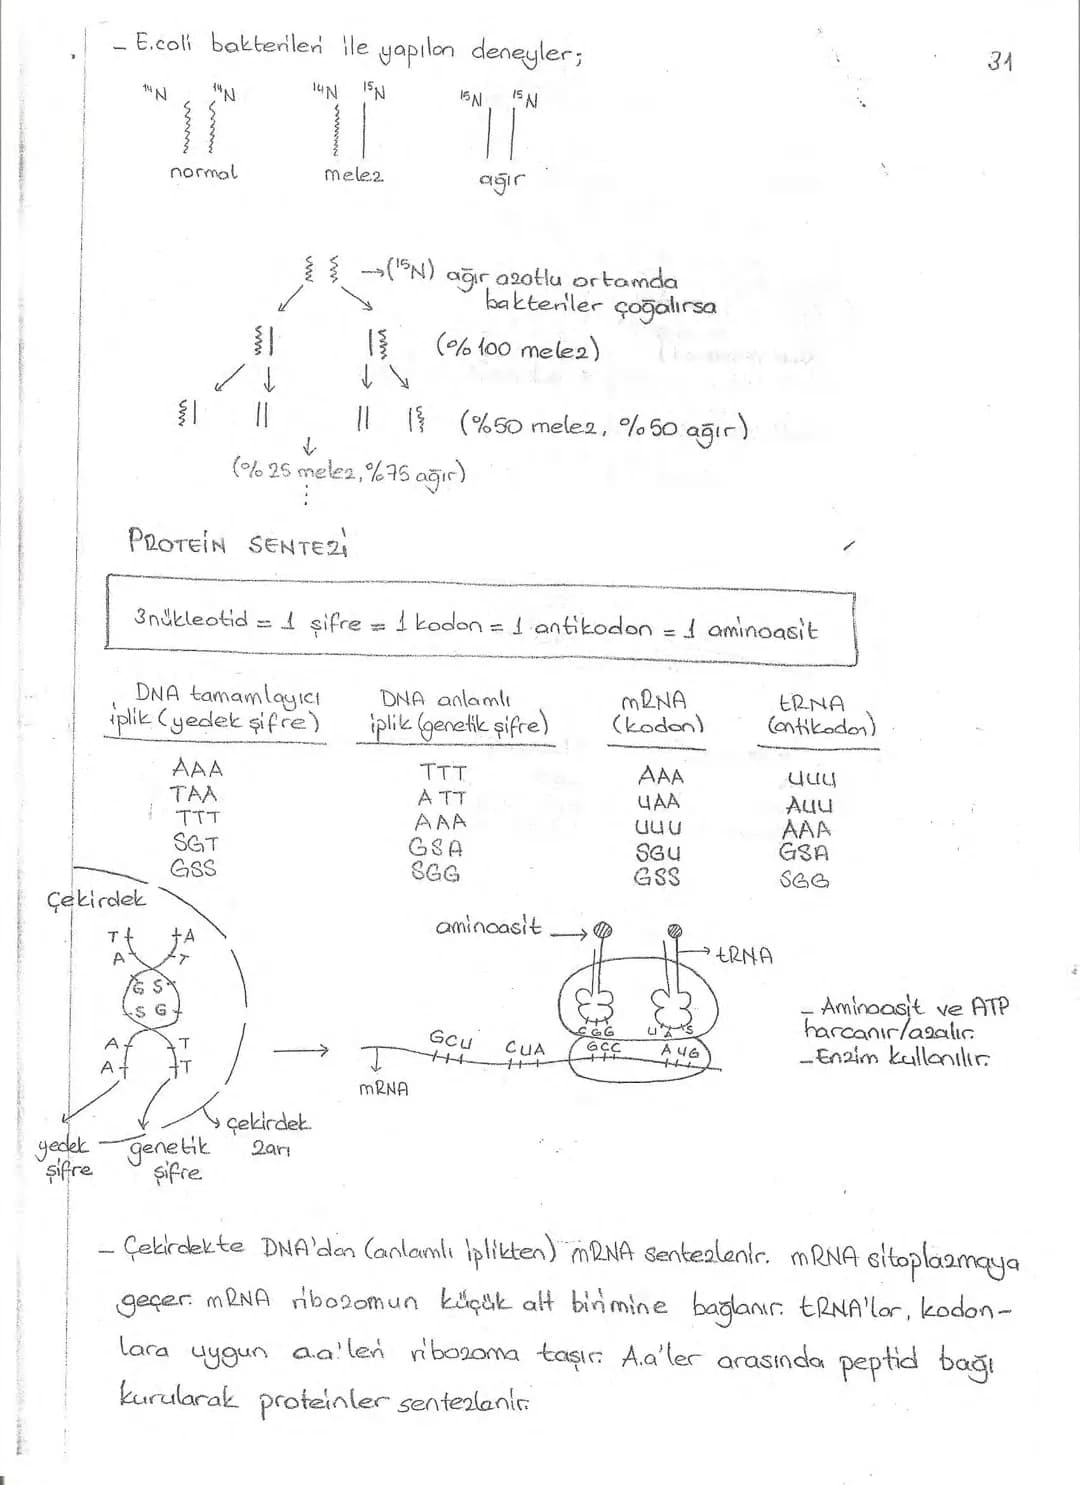 31
- E.coli bakterileri ile yapılan deneyler;
¹⁴N ¹⁴N ¹⁴N ¹⁵N ¹⁵N ¹⁵N
normal melez ağır
→(¹⁵N) ağır azotlu ortamda
bakteriler çoğalırsa
(%100 melez)
(%50 melez, %50 ağır)
(%25 melez, %75 ağır)
PROTEİN SENTEZİ
3nükleotid = 1 şifre = 1 kodon = 1 antikodon = 1 aminoasit
DNA tamamlayıcı DNA anlamlı mRNA tRNA
iplik (yedek şifre) iplik (genetik şifre) (kodon) (antikodon)
AAA TTT AAA UUU
TAA ATT UAA AUU
TTT AAA UUU AAA
SGT GSA SGU GSA
GSS SGG GSS SGG
Çekirdek
aminoasit
T A
A T
tRNA
G S
S G
CGG UAS
- Aminoasit ve ATP
harcanır/azalır.
- Enzim kullanılır.
A T
A T
GCU CUA GCC AUG
mRNA
çekirdek
zarı
yedek
şifre
genetik
şifre
- Çekirdekte DNA'dan (anlamlı iplikten) mRNA sentezlenir. mRNA sitoplazmaya
geçer. mRNA ribozomun küçük alt birimine bağlanır. tRNA'lar, kodon-
lara uygun a.a'leri ribozoma taşır. A.a'ler arasında peptid bağı
kurularak proteinler sentezlenir.